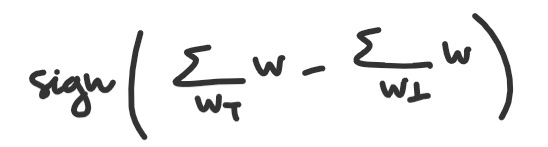 sign( Σ_{W_T} W - Σ_{W_⊥} W )